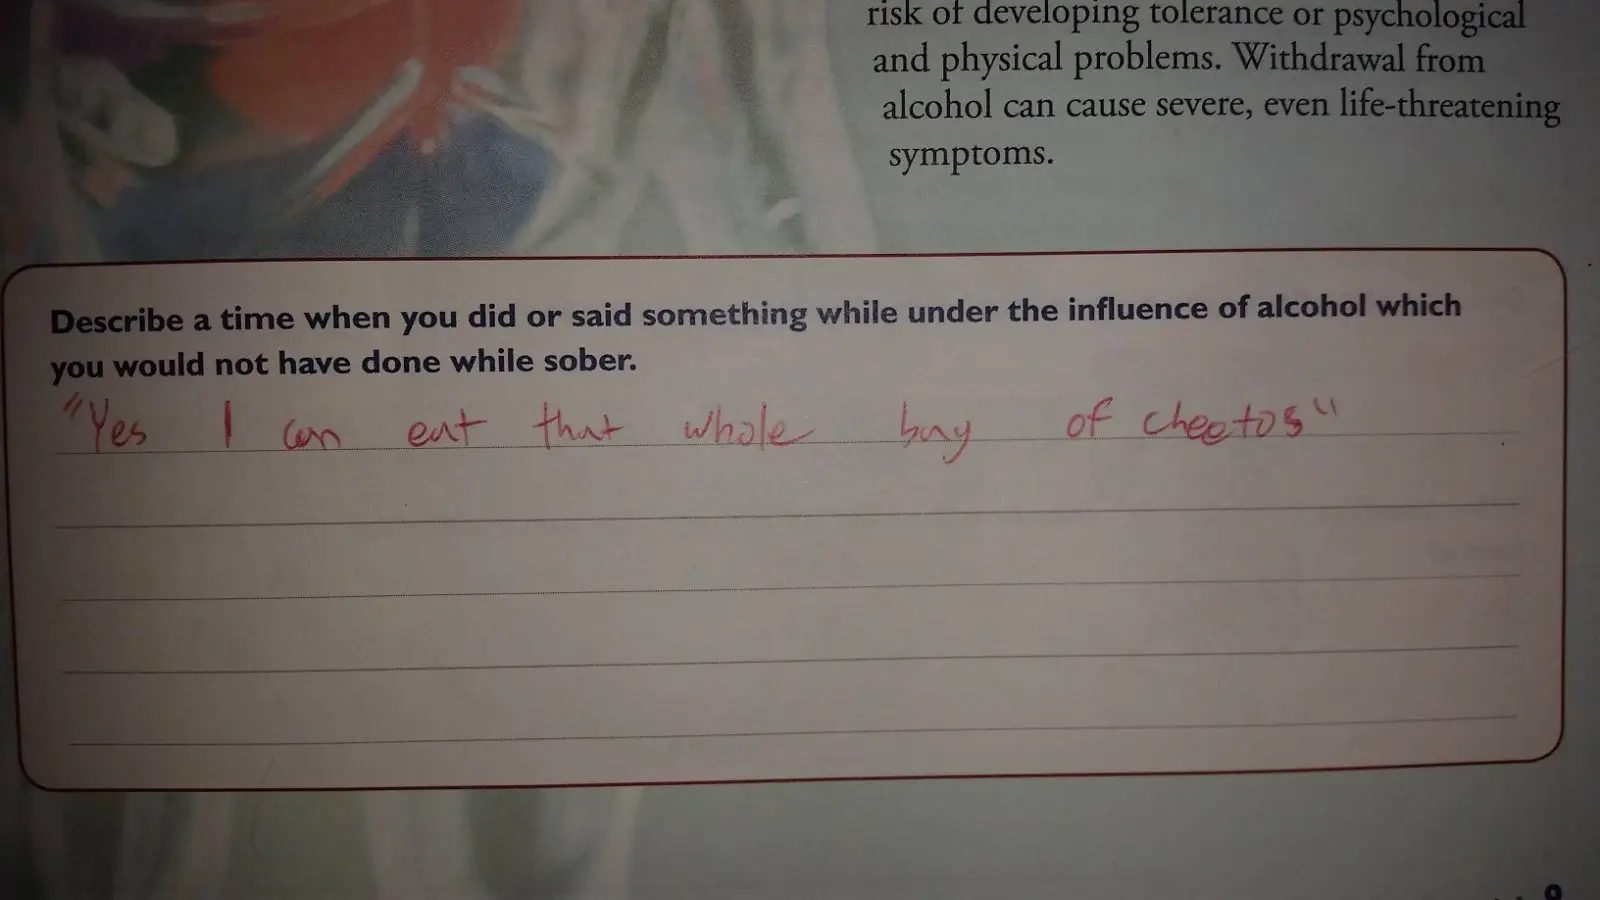 risk of developing tolerance or psychological
and physical problems. Withdrawal from
alcohol can cause severe, even life-threatening
symptoms.
Describe a time when you did or said something while under the influence of alcohol which
you would not have done while sober.
"Yes I can eat that whole bag of cheetos"
9